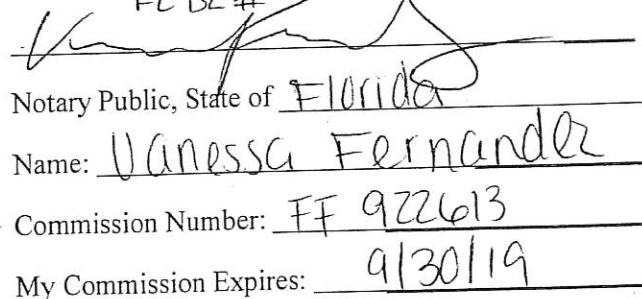 FL DL #
Notary Public, State of Florida
Name: Vanessa Fernandez
Commission Number: FF 922613
My Commission Expires: 9/30/19